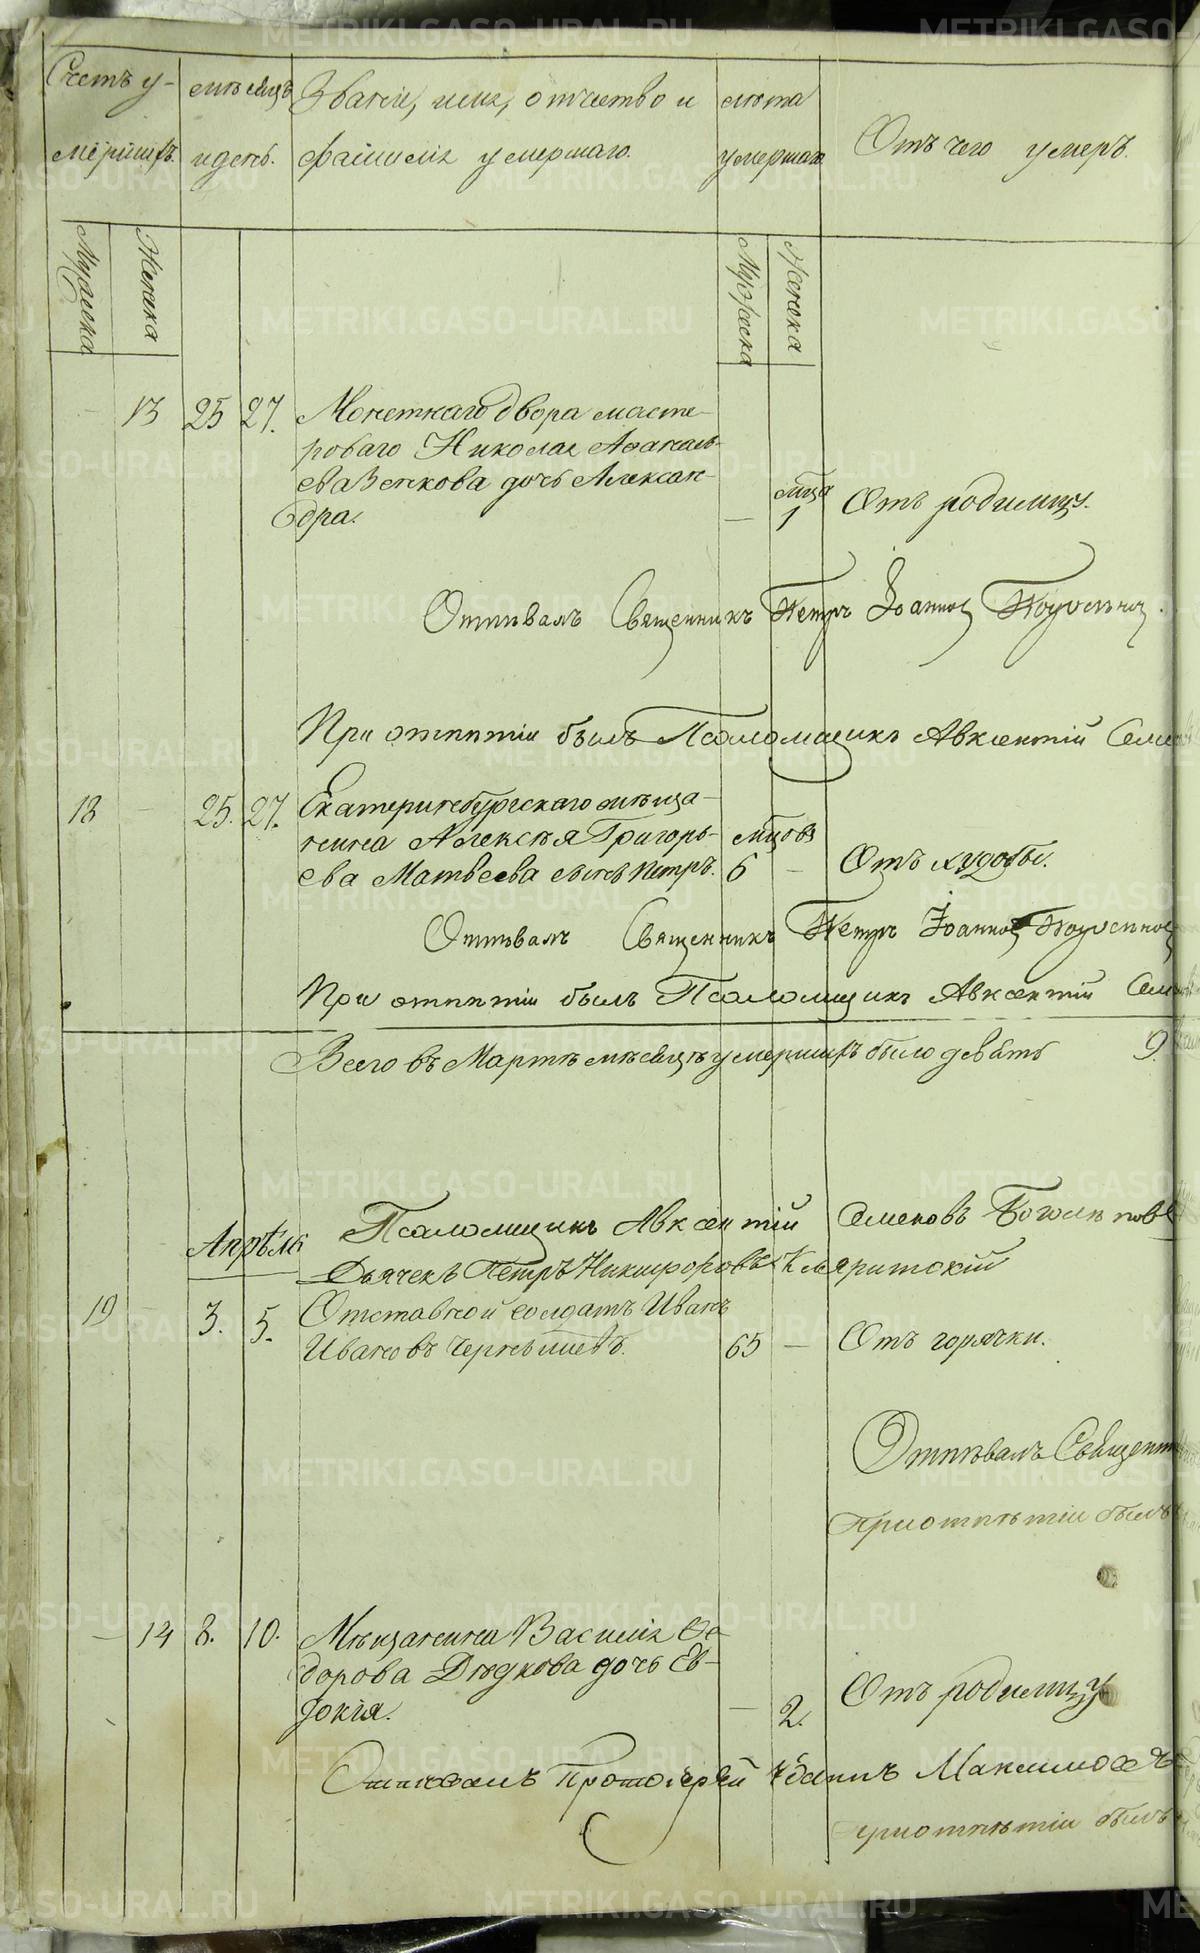 Счетъ у-
мершихъ.
мѣсяцъ
и день.
Званіе, имя, отчество и
фамилія умершаго.
лѣта
умершаго
Отъ чего умеръ.
Мужеска
Женска
Мужеска
Женска
— 13 25 27. Монетнаго двора масте-
роваго Николая Аѳанась-
ева Зенкова дочь Алексан-
дра.
— мѣца 1 Отъ родимцу.
Отпѣвалъ Священникъ Петръ Іоанновъ
При отпѣтіи былъ Псаломщикъ Авксентій
18 — 25. 27. Екатеринебургскаго мѣща-
нина Алексѣя Григорь-
ева Матвеева сынъ Петръ.
мѣцовъ 6 — Отъ худобы.
Отпѣвалъ Священникъ Петръ Іоанновъ
При отпѣтіи былъ Псаломщикъ Авксентій
Всего въ Мартѣ мѣсяцѣ умершихъ было девять 9.
Псаломщикъ Авксентій Семеновъ Боголѣповъ
Апрѣля
Дьячекъ Петръ Никифоровъ
19 — 3. 5. Отставной солдатъ Иванъ
Ивановъ Чернышевъ.
65 — Отъ горячки.
Отпѣвалъ
При отпѣтіи былъ
— 14 8. 10. Мѣщанина Василія Ѳе-
дорова Дѣдкова дочь Ев-
докія.
— 2. Отъ родимцу
Отпѣвалъ Протоіерей Іоаннъ Максимовъ
При отпѣтіи былъ